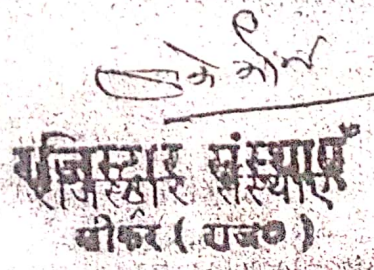 रजिस्ट्रार संस्थाएँ
सीकर ( राज० )